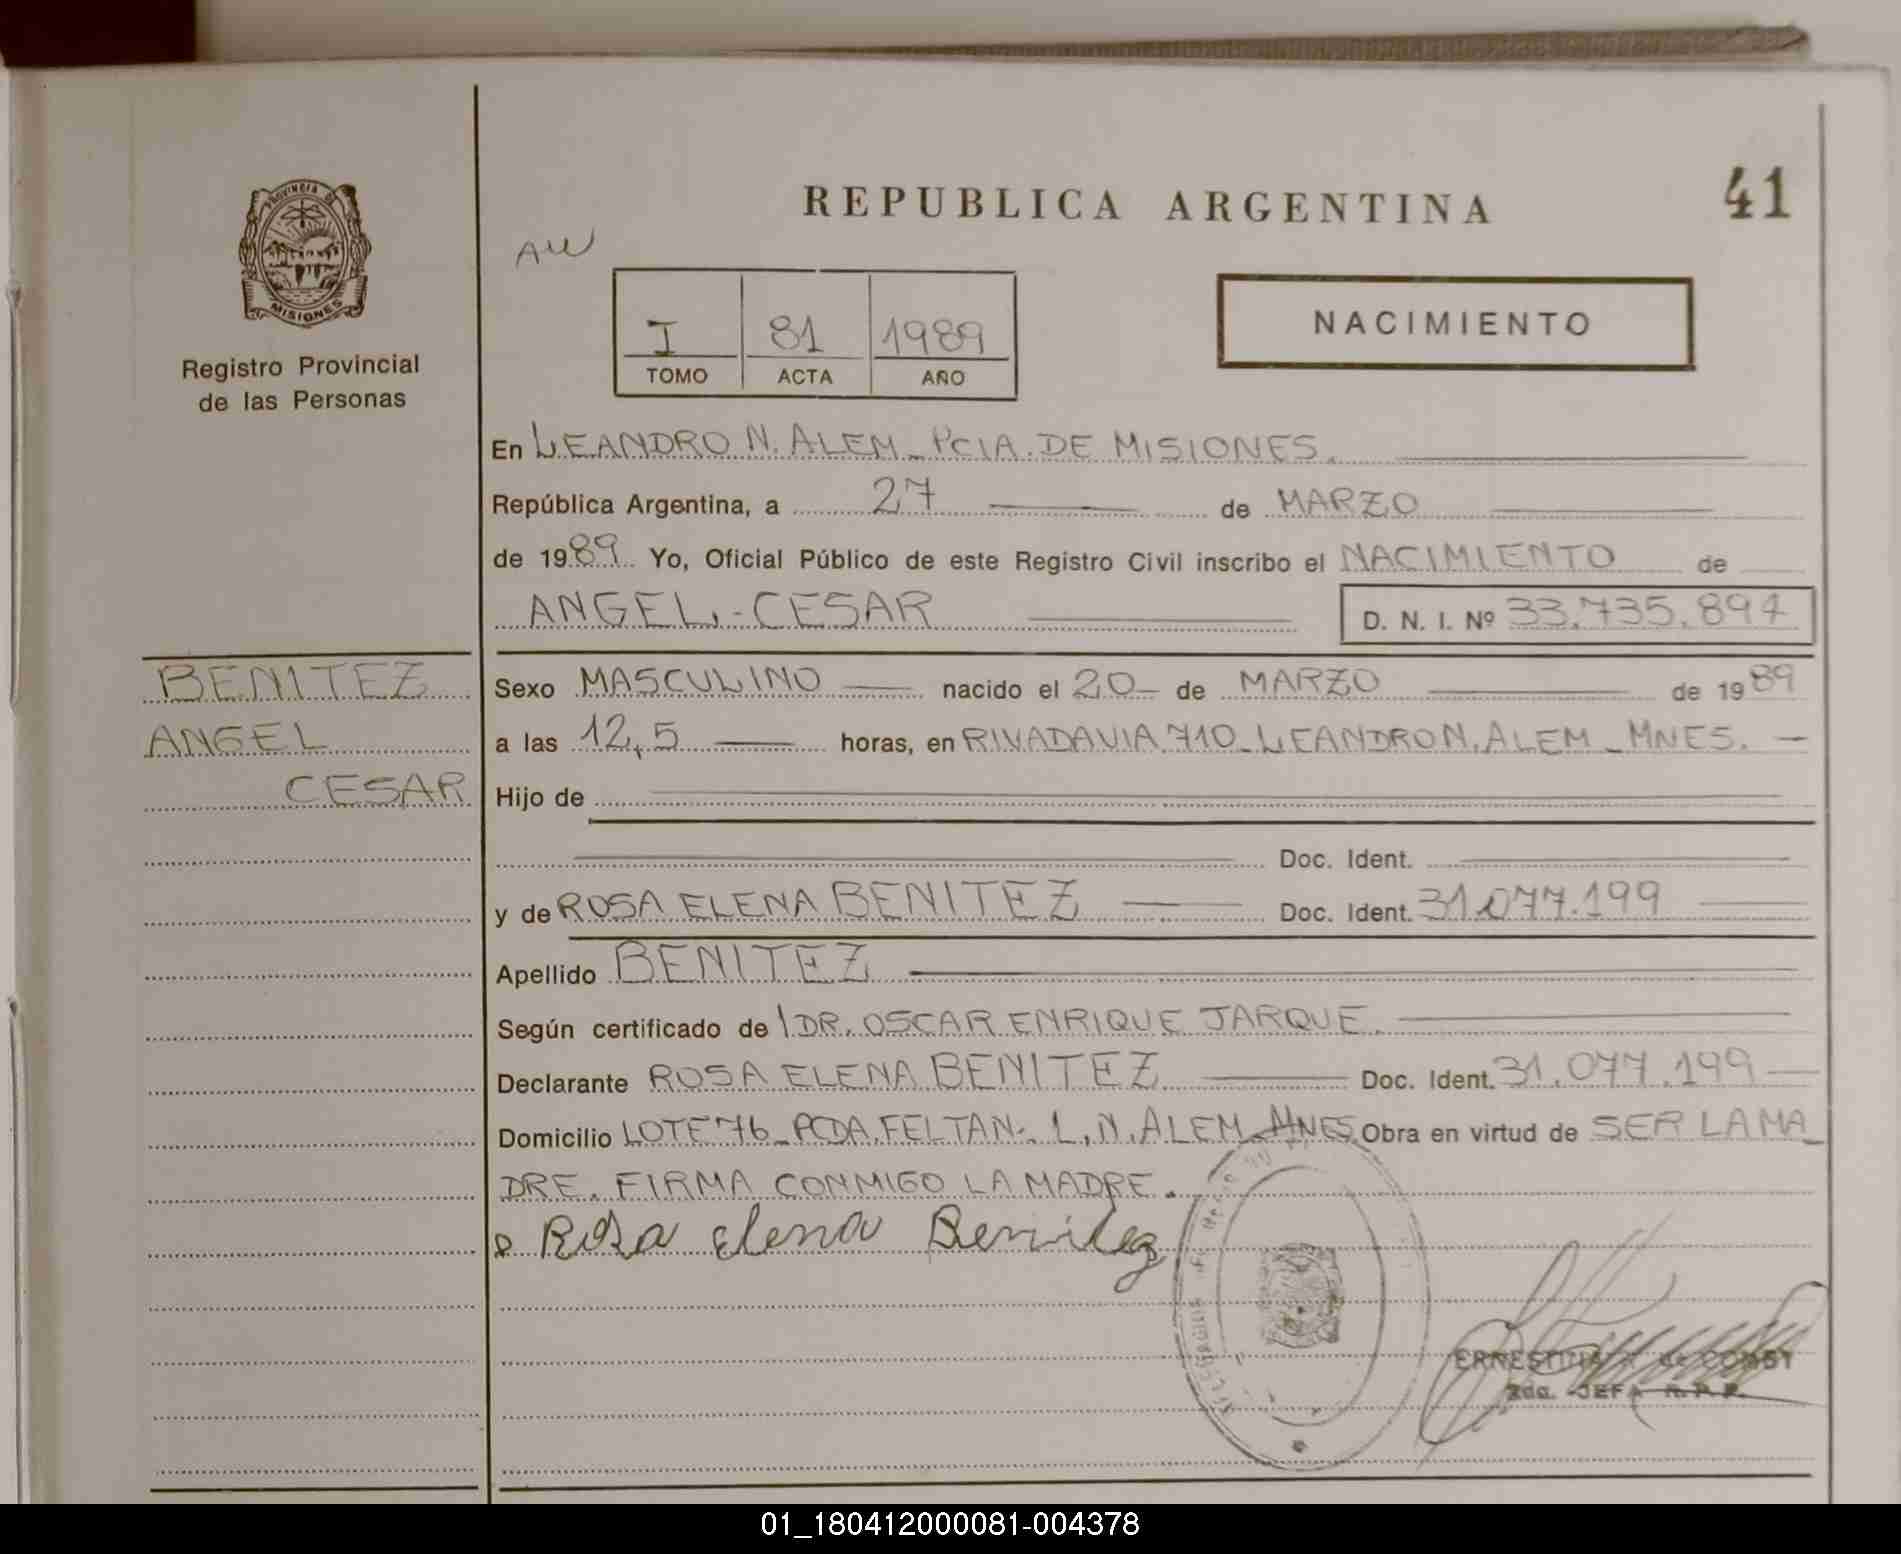 REPUBLICA ARGENTINA
41
PROVINCIA DE
MISIONES
Registro Provincial
de las Personas
I 81 1989
TOMO ACTA AÑO
NACIMIENTO
En LEANDRO N. ALEM_PCIA. DE MISIONES.
República Argentina, a 27 de MARZO
de 1989 Yo, Oficial Público de este Registro Civil inscribo el NACIMIENTO de
ANGEL.-CESAR
D. N. I. Nº 33.735.894
BENITEZ
ANGEL
CESAR
Sexo MASCULINO nacido el 20 de MARZO de 1989
a las 12,5 horas, en RIVADAVIA.710_LEANDRO N. ALEM_MNES.
Hijo de
Doc. Ident.
y de ROSA ELENA BENITEZ Doc. Ident. 31.077.199
Apellido BENITEZ
Según certificado de DR. OSCAR ENRIQUE JARQUE.
Declarante ROSA ELENA BENITEZ Doc. Ident. 31.077.199
Domicilio LOTE 76_PCDA. FELTAN. L. N. ALEM_MNES. Obra en virtud de SER LA MA_
DRE. FIRMA CONMIGO LA MADRE.
Rosa Elena Benitez
2da. JEFA R. P. P.
01_180412000081-004378